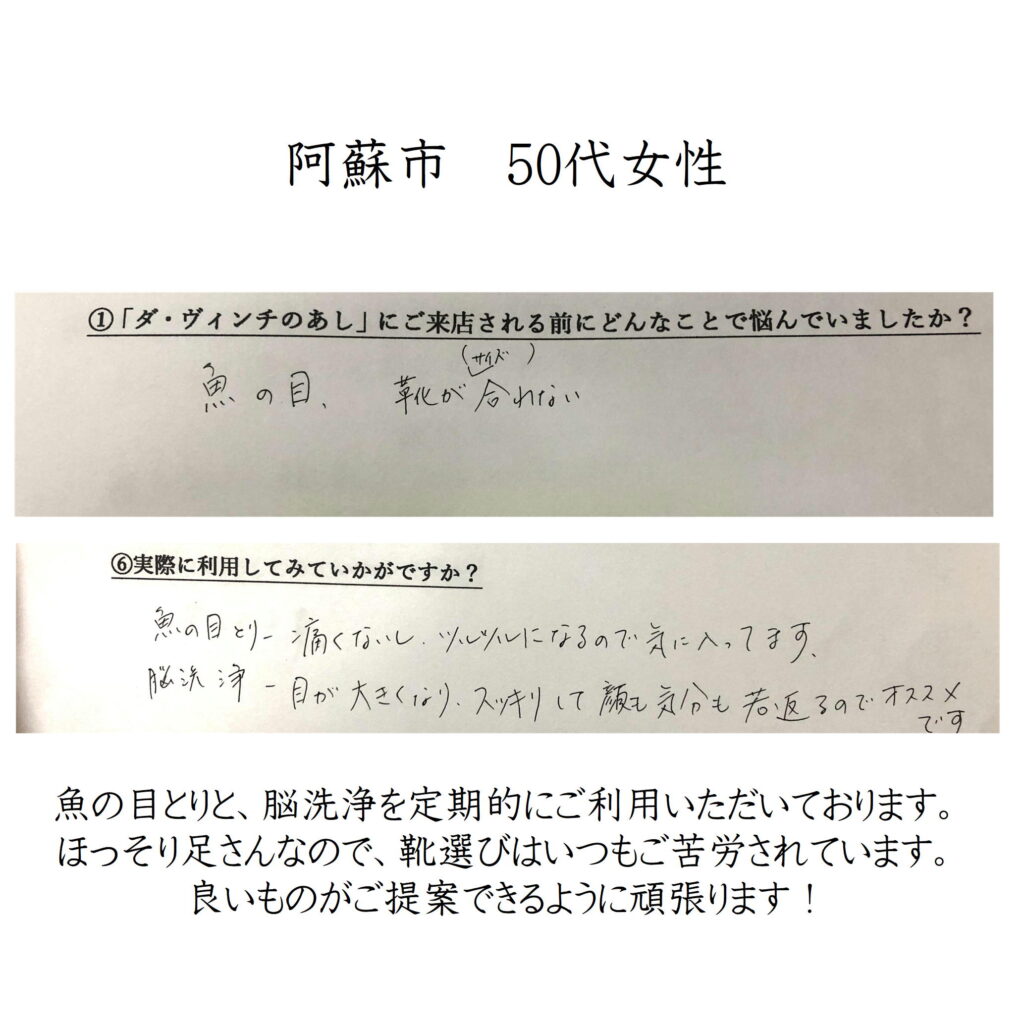 阿蘇市　50代女性
①「ダ・ヴィンチのあし」にご来店される前にどんなことで悩んでいましたか？
(サイズ)
魚の目、　靴が合れない
⑥実際に利用してみていかがですか？
魚の目とり－痛くないし、ツルツルになるので気に入ってます、
脳洗浄－目が大きくなり、スッキリして顔も気分も若返るのでオススメ
です
魚の目とりと、脳洗浄を定期的にご利用いただいております。
ほっそり足さんなので、靴選びはいつもご苦労されています。
良いものがご提案できるように頑張ります！